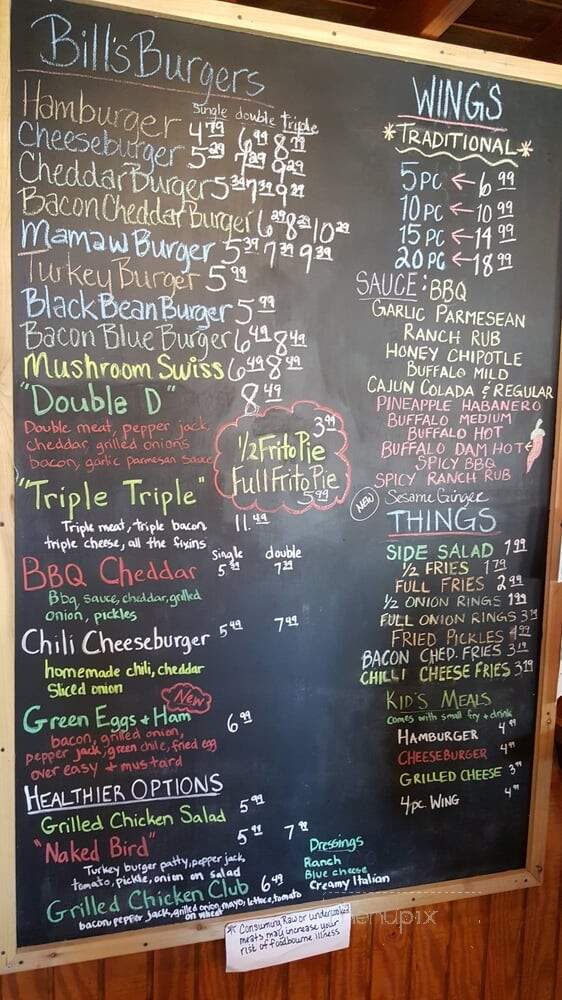 Bill's Burgers
single double triple
Hamburger 4.79 6.99 8.79
Cheeseburger 5.29 7.29 9.29
Cheddar Burger 5.39 7.39 9.39
Bacon Cheddar Burger 6.29 8.29 10.29
Mamaw Burger 5.39 7.39 9.39
Turkey Burger 5.99
Black Bean Burger 5.99
Bacon Blue Burger 6.49 8.49
Mushroom Swiss 6.49 8.49
"Double D" 8.49
Double meat, pepper jack,
cheddar grilled onions
bacon, garlic parmesan sauce
3.99
1/2 Frito Pie
Full Frito Pie
5.99
"Triple Triple"
11.49
Triple meat, triple bacon
triple cheese, all the fixins
single double
BBQ Cheddar
Bbq sauce, cheddar, grilled
onion, pickles
Chili Cheeseburger 5.49 7.49
homemade chili, cheddar
Sliced onion
New
Green Eggs + Ham 6.99
bacon, grilled onion,
pepper jack, green chile, fried egg
over easy + mustard
HEALTHIER OPTIONS
Grilled Chicken Salad 5.99
"Naked Bird"
Turkey burger patty, pepper jack,
tomato, pickle, onion on salad
Grilled Chicken Club 6.49
bacon, pepper jack, grilled onion, mayo, lettuce, tomato
on wheat
Dressings
Ranch
Blue cheese
Creamy Italian
WINGS
*TRADITIONAL*
5 PC ← 6.99
10 PC ← 10.99
15 PC ← 14.99
20 PC ← 18.99
SAUCE: BBQ
GARLIC PARMESEAN
RANCH RUB
HONEY CHIPOTLE
BUFFALO MILD
CAJUN COLADA & REGULAR
PINEAPPLE HABANERO
BUFFALO MEDIUM
BUFFALO HOT
BUFFALO DAM HOT
SPICY BBQ
SPICY RANCH RUB
NEW Sesame Ginger
THINGS
SIDE SALAD
1/2 FRIES 1.79
FULL FRIES 2.99
1/2 ONION RINGS 1.99
FULL ONION RINGS 3.19
FRIED PICKLES 4.99
BACON CHED. FRIES 3.19
CHILLI CHEESE FRIES 3.19
KID'S MEALS
comes with small fry + drink
HAMBURGER 4.99
CHEESEBURGER 4.99
GRILLED CHEESE 3.99
4 pc. WING 4.99
* Consuming Raw or undercooked
meats may increase your
rist of foodbourne illness
menupix